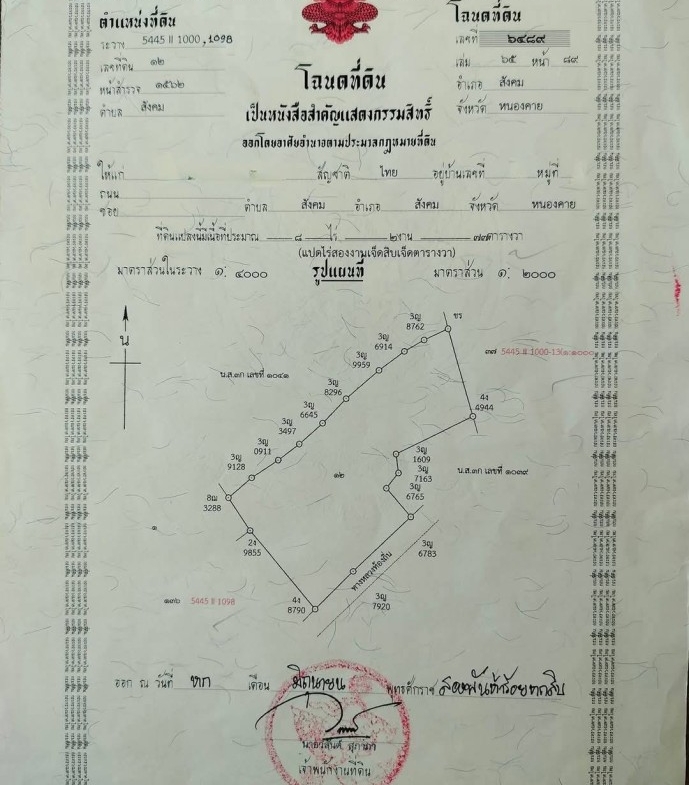 ตำแหน่งที่ดิน
ระวาง 5445 II 1000 , 1098
เลขที่ดิน ๑๒
หน้าสำรวจ ๑๕๖๒
ตำบล สังคม
โฉนดที่ดิน
เลขที่ ๖๔๘๙
เล่ม ๖๕ หน้า ๘๙
อำเภอ สังคม
จังหวัด หนองคาย
โฉนดที่ดิน
เป็นหนังสือสำคัญแสดงกรรมสิทธิ์
ออกโดยอาศัยอำนาจตามประมวลกฎหมายที่ดิน
ให้แก่ สัญชาติ ไทย อยู่บ้านเลขที่ หมู่ที่
ถนน
ซอย ตำบล สังคม อำเภอ สังคม จังหวัด หนองคาย
ที่ดินแปลงนี้มีเนื้อที่ประมาณ ๘ ไร่ ๒ งาน ๗๗ ตารางวา
(แปดไร่สองงานเจ็ดสิบเจ็ดตารางวา)
มาตราส่วนในระวาง ๑: ๔๐๐๐ รูปแผนที่ มาตราส่วน ๑: ๒๐๐๐
น
ขร
3ญ
8762
3ญ
6914
3ญ
9959
๓๗ 5445 II 1000-13
น.ส.๓ก เลขที่ ๑๐๔๑
3ญ
8296
4ง
4944
3ญ
6645
3ญ
3497
3ญ
0911
3ญ
9128
3ญ
1609
3ญ
7163
น.ส.๓ก เลขที่ ๑๐๓๙
๑๒
3ญ
6765
8ฌ
3288
๑
2ง
9855
3ญ
6783
ทางหลวงท้องถิ่น
๑๓๖ 5445 II 1098
4ง
8790
3ญ
7920
ออก ณ วันที่ หก เดือน มิถุนายน พุทธศักราช สองพันห้าร้อยหกสิบ
เจ้าพนักงานที่ดิน